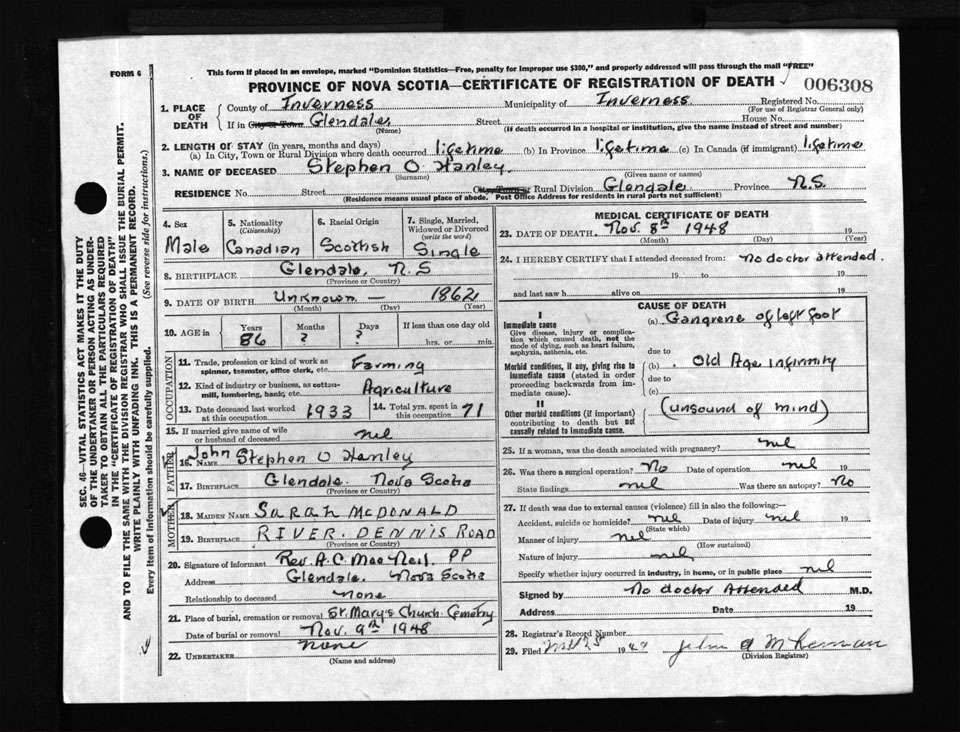 FORM 6
This form if placed in an envelope, marked "Dominion Statistics—Free, penalty for improper use $300," and properly addressed will pass through the mail "FREE"
PROVINCE OF NOVA SCOTIA—CERTIFICATE OF REGISTRATION OF DEATH
006308
1. PLACE OF DEATH
County of Inverness Municipality of Inverness Registered No.
(For use of Registrar General only)
If in City or Town Glendale Street House No.
(Name) (If death occurred in a hospital or institution, give the name instead of street and number)
2. LENGTH OF STAY (in years, months and days)
(a) In City, Town or Rural Division where death occurred lifetime (b) In Province lifetime (c) In Canada (if immigrant) lifetime
3. NAME OF DECEASED Stephen O Hanley
(Surname) (Given name or names)
RESIDENCE No. Street Rural Division Glendale Province N.S.
(Residence means usual place of abode. Post Office Address for residents in rural parts not sufficient)
4. Sex
Male
5. Nationality (Citizenship)
Canadian
6. Racial Origin
Scottish
7. Single, Married, Widowed or Divorced (write the word)
Single
8. BIRTHPLACE Glendale, N.S
(Province or Country)
9. DATE OF BIRTH Unknown — 1862
(Month) (Day) (Year)
10. AGE in
Years Months Days If less than one day old
86 ? ? hrs. or min.
OCCUPATION
11. Trade, profession or kind of work as spinner, teamster, office clerk, etc. Farming
12. Kind of industry or business, as cotton-mill, lumbering, bank, etc. Agriculture
13. Date deceased last worked at this occupation 1933
14. Total yrs. spent in this occupation 71
15. If married give name of wife or husband of deceased nil
FATHER
16. Name John Stephen O Hanley
17. BIRTHPLACE Glendale. Nova Scotia
(Province or Country)
MOTHER
18. MAIDEN NAME Sarah McDONALD
19. BIRTHPLACE RIVER. DENNIS ROAD
(Province or Country)
20. Signature of informant Rev. A.C. MacNeil. PP
Address Glendale. Nova Scotia
Relationship to deceased none
21. Place of burial, cremation or removal St. Mary's Church. Cemetry
Date of burial or removal Nov. 9th 1948
22. UNDERTAKER none
(Name and address)
MEDICAL CERTIFICATE OF DEATH
23. DATE OF DEATH Nov. 8th 1948 19
(Month) (Day) (Year)
24. I HEREBY CERTIFY that I attended deceased from: No doctor attended.
19 to 19
and last saw h alive on 19
CAUSE OF DEATH
I
Immediate cause
Give disease, injury or complication which caused death, not the mode of dying, such as heart failure, asphyxia, asthenia, etc.
(a) Gangrene of left foot
due to
Morbid conditions, if any, giving rise to immediate cause (stated in order proceeding backwards from immediate cause).
(b) . Old Age infirmity
due to
(c)
II
Other morbid conditions (if important) contributing to death but not causally related to immediate cause.
(unsound of mind)
25. If a woman, was the death associated with pregnancy? nil
26. Was there a surgical operation? No Date of operation nil 19
State findings nil Was there an autopsy? No
27. If death was due to external causes (violence) fill in also the following:—
Accident, suicide or homicide? nil Date of injury nil 19
(State which)
Manner of injury nil
(How sustained)
Nature of injury nil
Specify whether injury occurred in industry, in home, or in public place nil
Signed by No doctor Attended M.D.
Address Date 19
28. Registrar's Record Number
29. Filed 19 John A
(Division Registrar)
SEC. 46—VITAL STATISTICS ACT MAKES IT THE DUTY
OF THE UNDERTAKER OR PERSON ACTING AS UNDER-
TAKER TO OBTAIN ALL THE PARTICULARS REQUIRED
IN THE "CERTIFICATE OF REGISTRATION OF DEATH"
AND TO FILE THE SAME WITH THE DIVISION REGISTRAR WHO SHALL ISSUE THE BURIAL PERMIT.
WRITE PLAINLY WITH UNFADING INK. THIS IS A PERMANENT RECORD.
Every item of information should be carefully supplied. (See reverse side for instructions.)